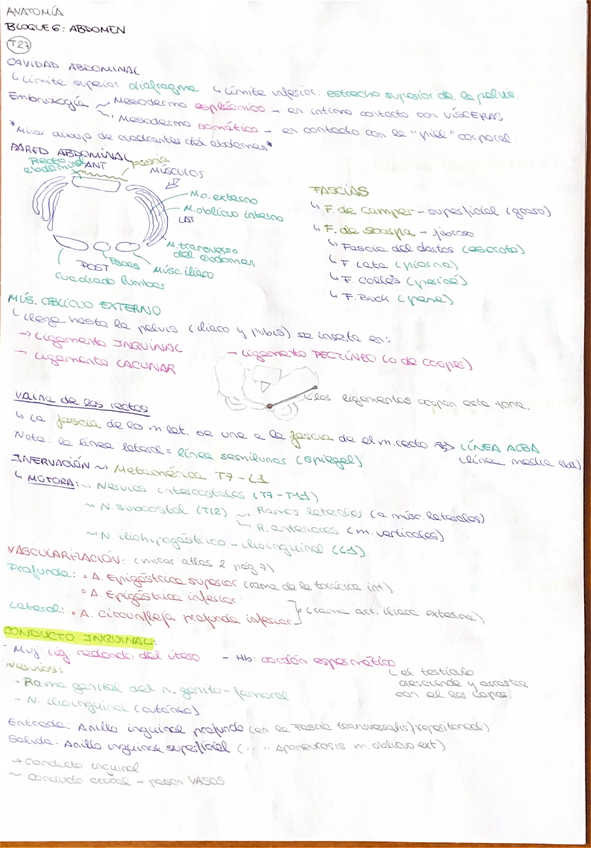 ANATOMÍA
BLOQUE 6: ABDOMEN
T27
CAVIDAD ABDOMINAL
↳ Límite superior diafragma ↳ Límite inferior: estrecho superior de la pelvis.
Embriología ~ Mesodermo esplácnico – en íntimo contacto con VÍSCERAS
~ Mesodermo somático – en contacto con la "piel" corporal
*Mirar dibujo de cuadrantes del abdomen*
PARED ABDOMINAL
Recto abdominal
ANT
fascia
MÚSCULOS
M.o. externo
M. oblicuo interno
LAT
M. transverso del abdomen
Músc. ilíaco
Psoas
POST
Cuadrado lumbar
FASCIAS
↳ F. de Camper – superficial (graso)
↳ F. de Scarpa – fibroso
↳ Fascia del dartos (escroto)
↳ F. Lata (pierna)
↳ F. Colles (periné)
↳ F. Buck (pene)
MÚS. OBLICUO EXTERNO
↳ llega hasta la pelvis (ilíaco y pubis) se inserta en:
→ Ligamento INGUINAL
→ Ligamento PECTÍNEO (o de Cooper)
→ Ligamento LACUNAR
Los ligamentos cogen esta zona.
Vaina de los rectos
↳ La fascia de los m lat. se une a la fascia de el m. recto ⇒ LÍNEA ALBA
(línea media)
Nota: la línea lateral = línea semilunar (spiegel)
INERVACIÓN ~ Metamérica T7 – L1
↳ MOTORA: ~ Nervios intercostales (T7 – T11)
~ N. subcostal (T12) ~ Ramos laterales (a músc laterales)
~ R. anteriores (m. verticales)
~ N. iliohipogástrico – ilioinguinal (L1)
VASCULARIZACIÓN: (mirar atlas 2 pág 7)
Profunda: • A. Epigástrica superior (rama de la torácica int)
• A. Epigástrica inferior
(rama art. ilíaca externa)
Lateral: • A. Circunfleja profunda inferior
CONDUCTO INGUINAL:
- Muj: lig redondo del útero – Hb: cordón espermático
↳ el testículo desciende y arrastra con él las capas.
Nervios:
- Rama genital del n. genito-femoral
- N. ilioinguinal (cutáneo)
Entrada: Anillo inguinal profundo (en la Fascia transversalis/
Salida: Anillo inguinal superficial ( " " Aponeurosis m. oblicuo ext)
→ Conducto inguinal
~ Conducto crural – pasan VASOS